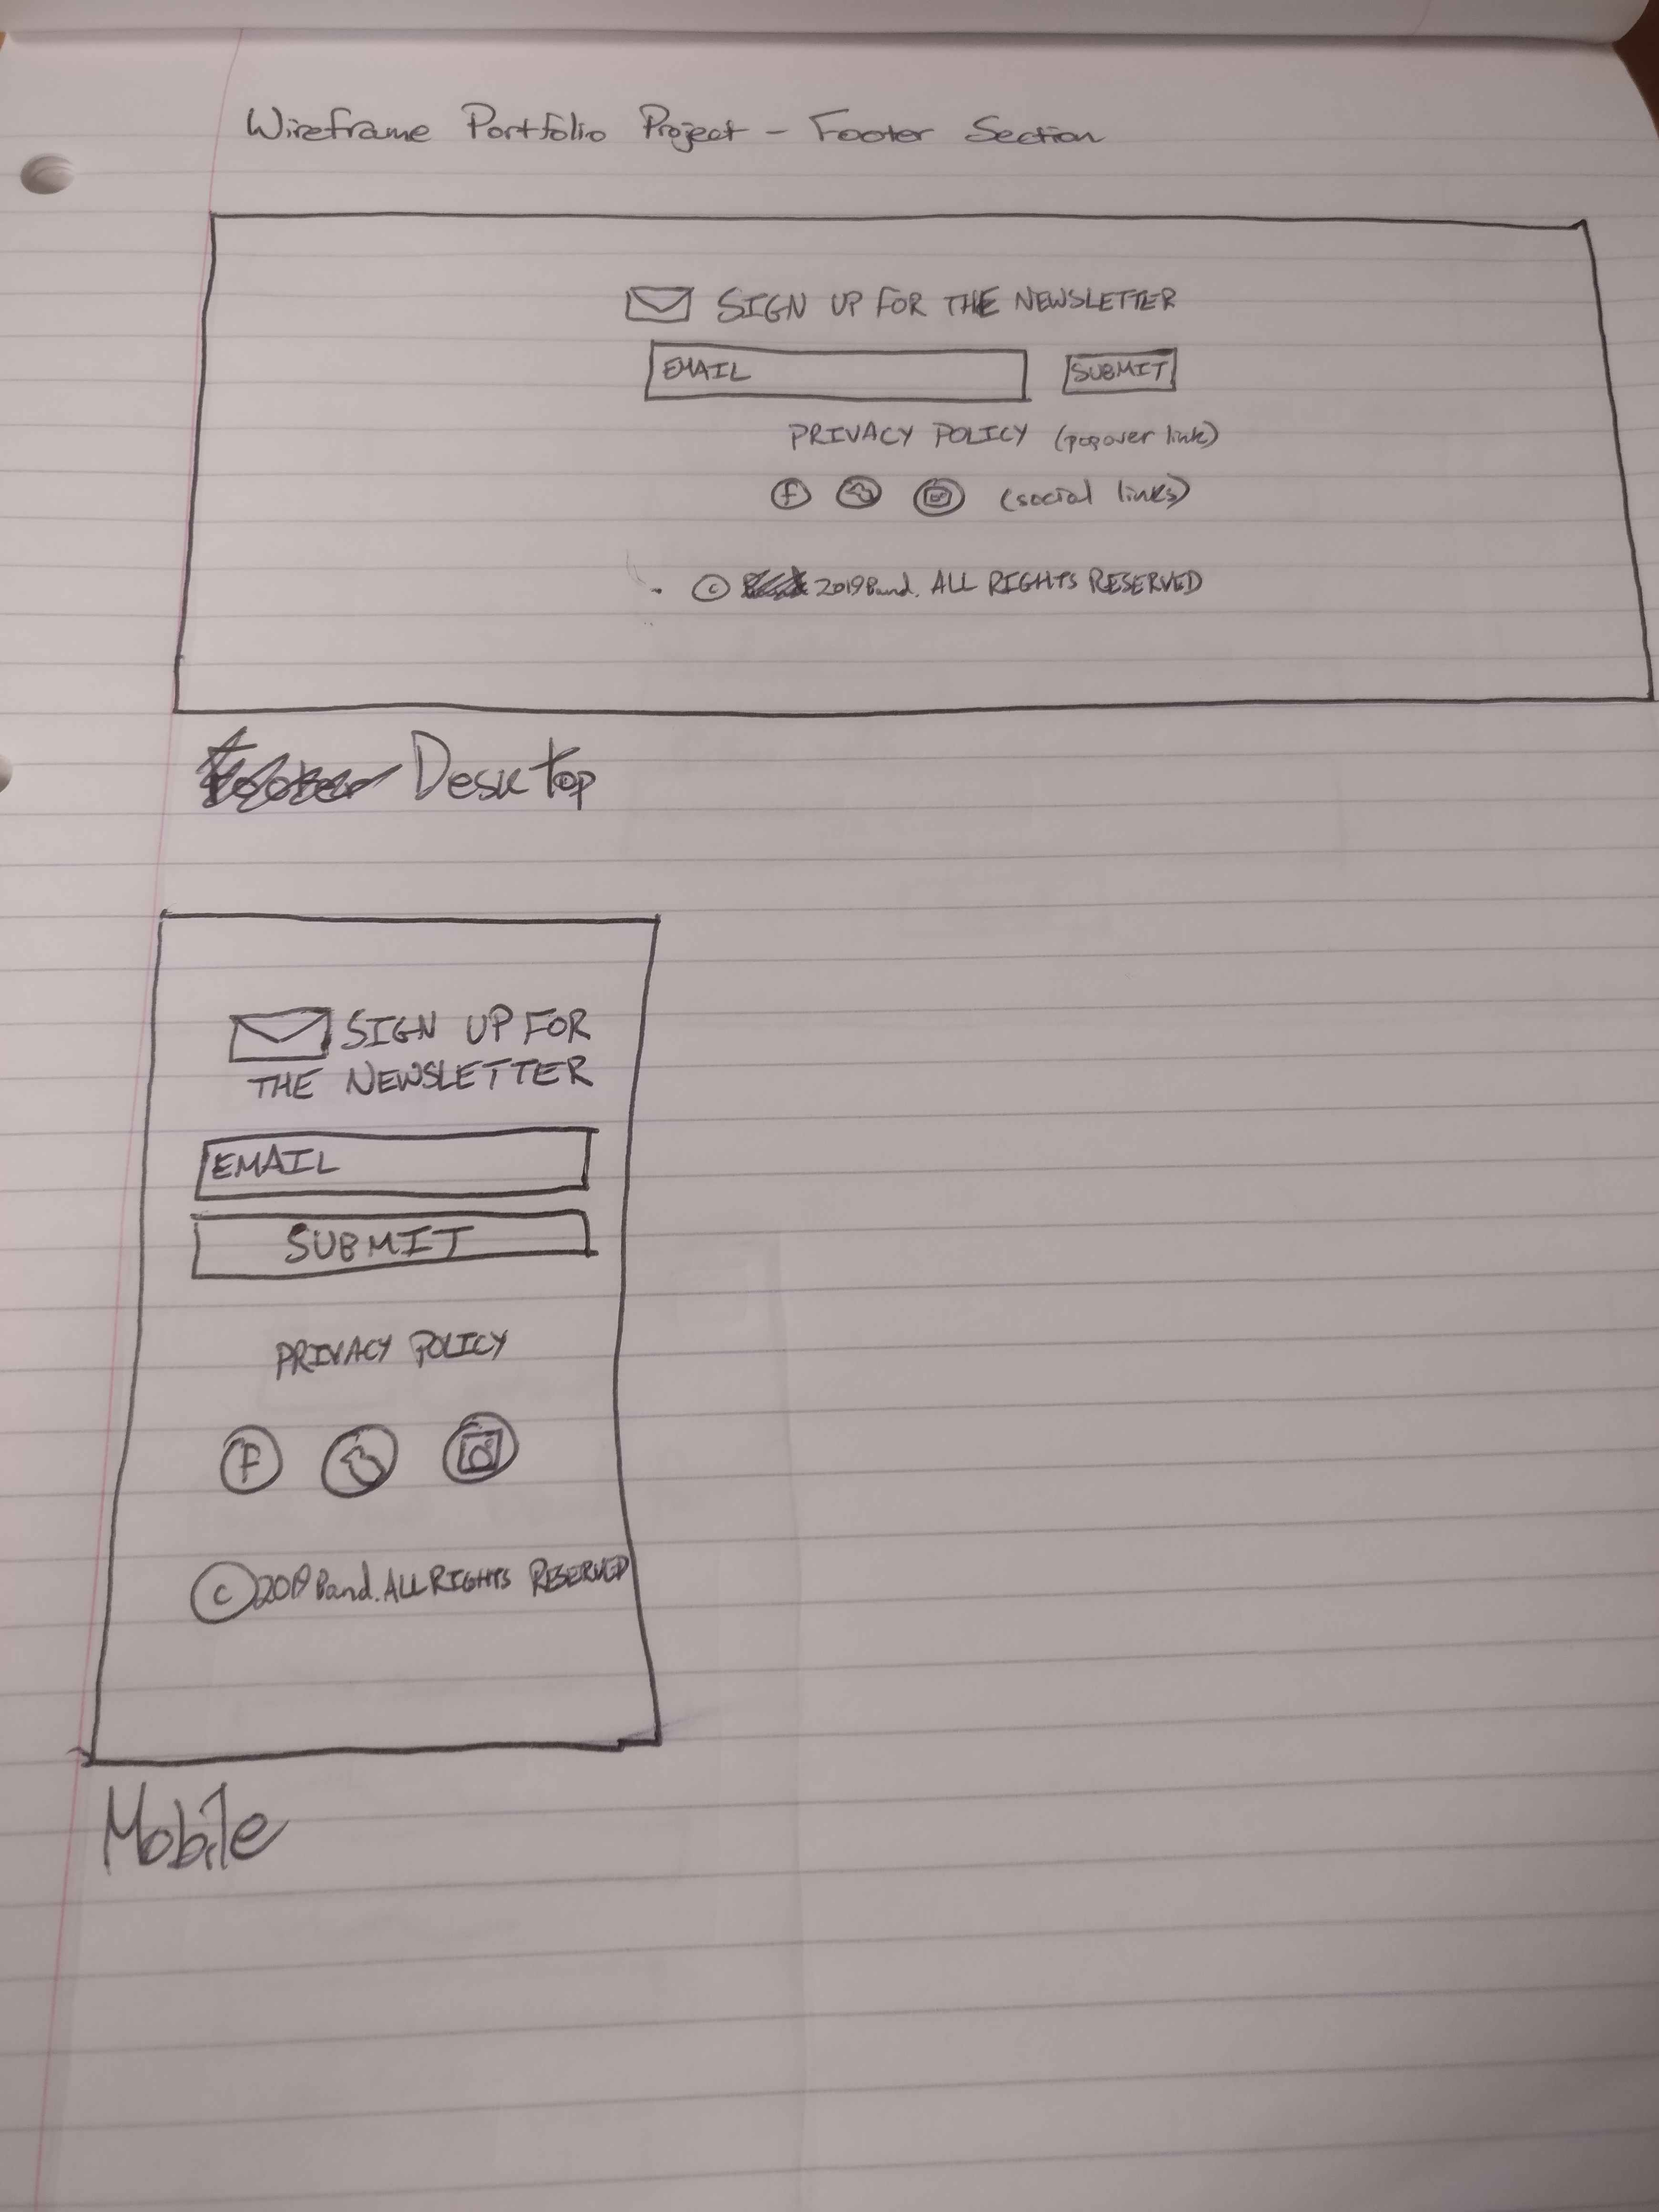 Wireframe Portfolio Project - Footer Section
SIGN UP FOR THE NEWSLETTER
EMAIL
SUBMIT
PRIVACY POLICY (popover link)
f (social links)
© 2019 Band. ALL RIGHTS RESERVED
Desktop
SIGN UP FOR
THE NEWSLETTER
EMAIL
SUBMIT
PRIVACY POLICY
f
© 2019 Band. ALL RIGHTS RESERVED
Mobile